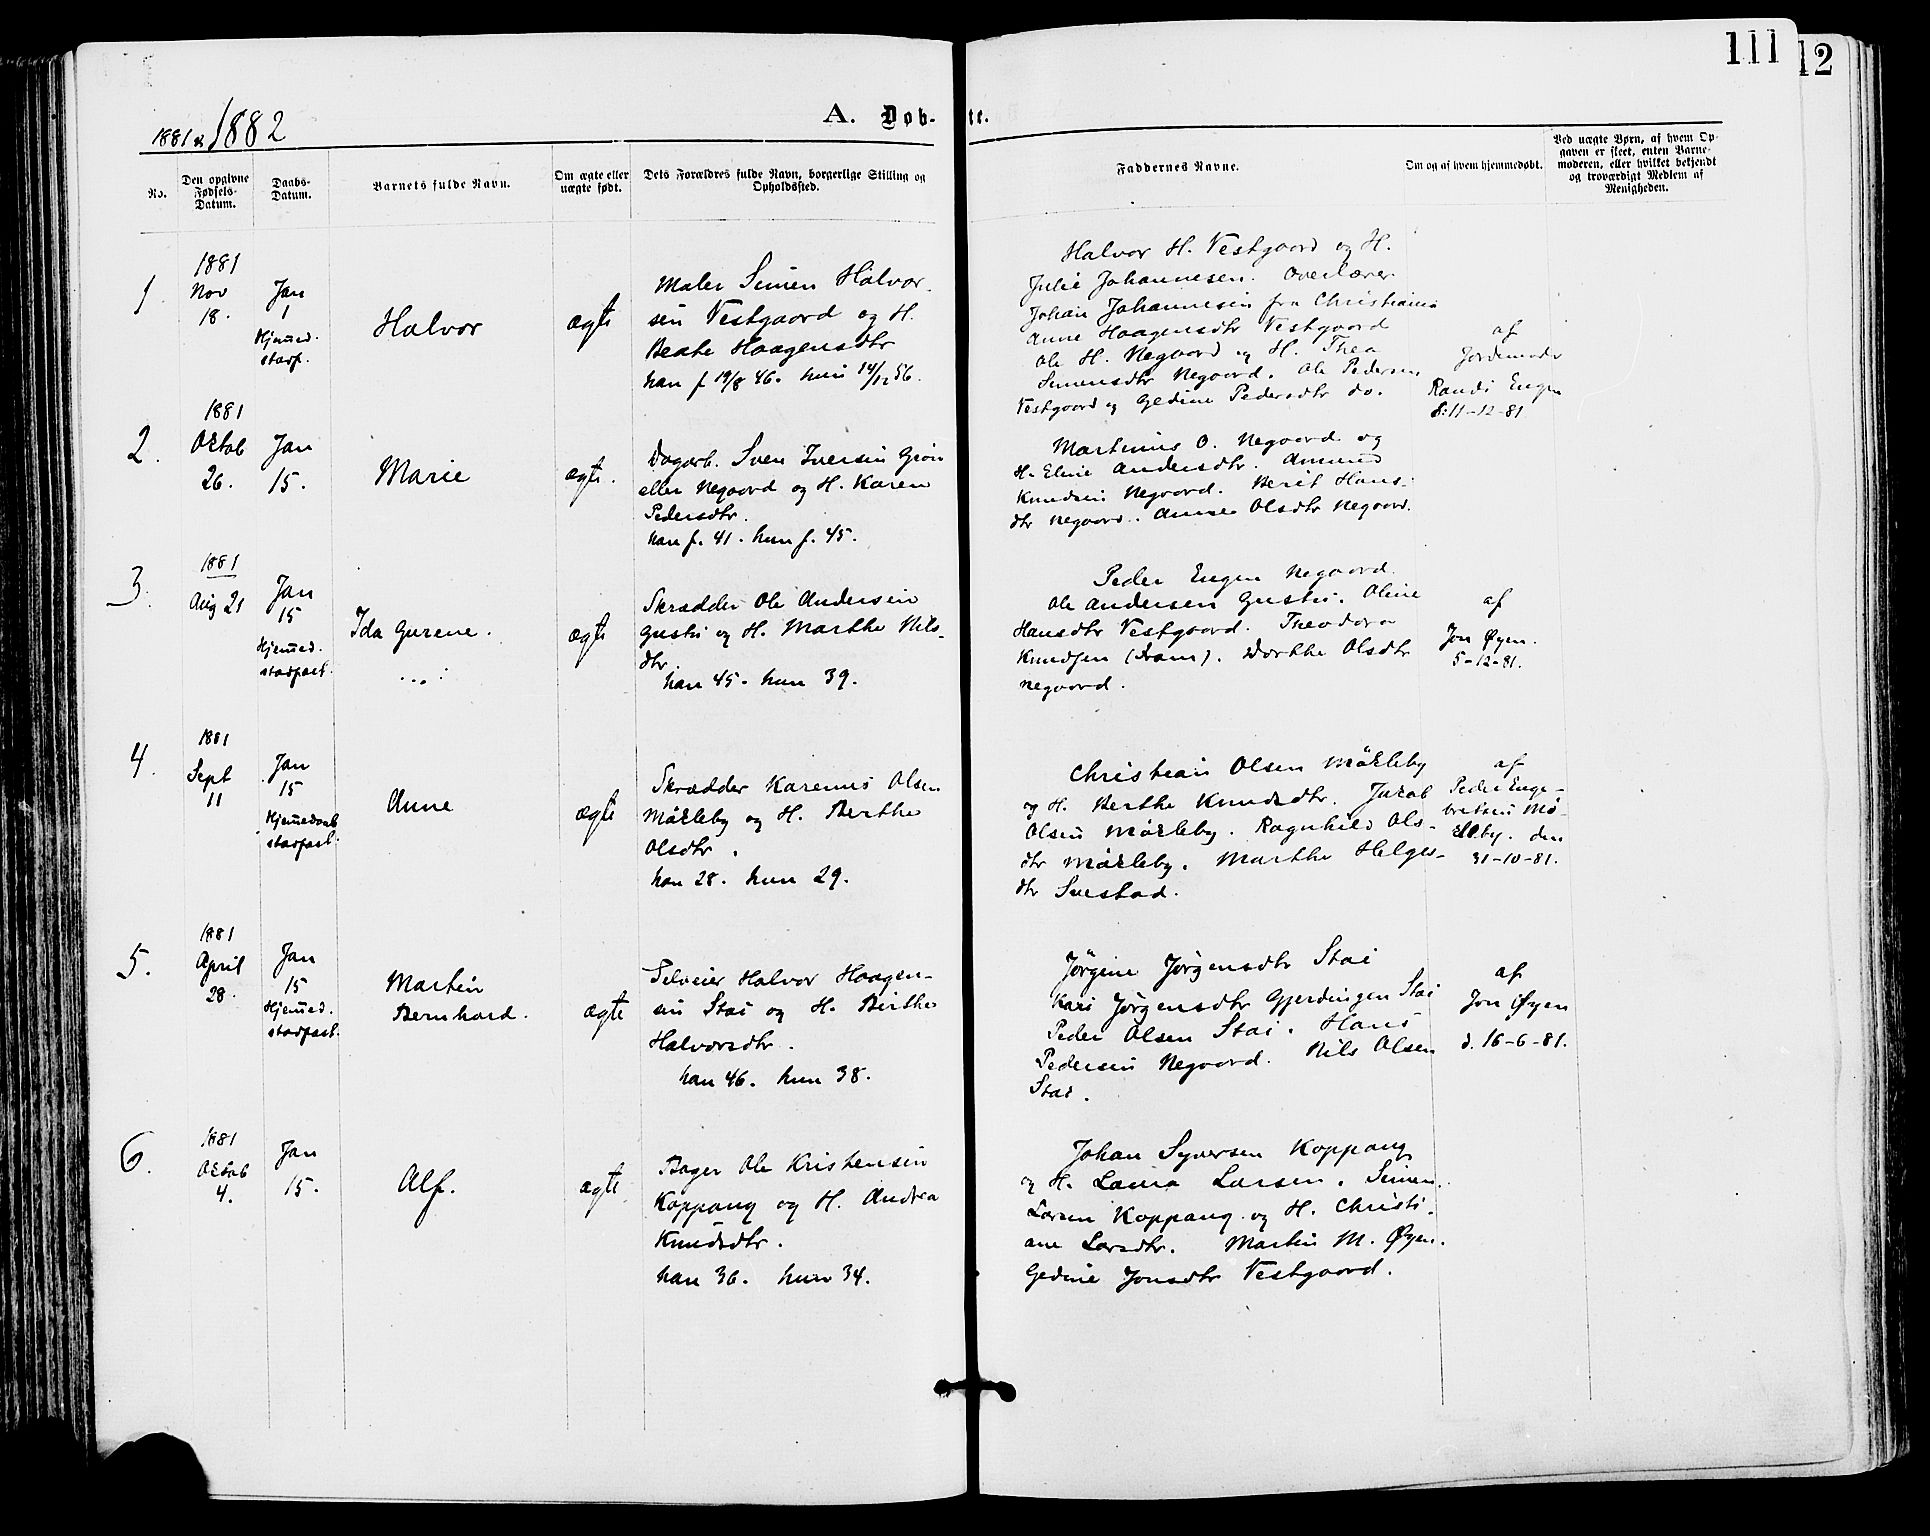 111
12
1881 &
1882
A. Døb-
te.
No.
Den opgivne
Fødsels-
Datum.
Daabs-
Datum.
Barnets fulde Navn.
Om ægte eller
uægte født.
Dets Forældres fulde Navn, borgerlige Stilling og
Opholdssted.
Faddernes Navne.
Om og af hvem hjemmedøbt.
Ved uægte Børn, af hvem Op-
gaven er skeet, enten Barne-
moderen, eller hvilket bekjendt
og troværdigt Medlem af
Menigheden.
1
1881
Nov
18.
Jan
1
Hjemmed.
stadf.
Halvor
ægte
Maler Simen Halvor-
sen Vestgaard og H.
Beate Haagensdtr
han f 19/8 46. hun 14/12 56.
Halvor H. Vestgaard og H.
Julie Johannesen. Overlærer
Johan Johannesen fra Christiania
Anne Haagensdtr Vestgaard
Ole H. Negaard og H. Thea
Simensdtr Negaard. Ole Pedersen
Vestgaard og Gedine Pedersdtr do.
af
Jordemoder
Randi Engen
d: 11-12-81
2.
1881
Oktob
26.
Jan
15.
Marie
ægte.
Dagarb. Sven Iversen Grøn
eller Negaard og H. Karen
Pedersdtr.
han f. 41. hun f. 45.
Martinus O. Negaard og
H. Eline Andersdtr. Amund
Knudsen Negaard. Berit Hans-
dtr Negaard. Anne Olsdtr Negaard.
3.
1881
Aug 21
Jan
15
Hjemmed.
stadfæst.
Ida Gurene.
ægte
Skrædder Ole Andersen
Gustu og H. Marthe Nils-
dtr.
han 45. hun 39.
Peder Engen Negaard.
Ole Andersen Gustu. Oline
Hansdtr Vestgaard. Theodora
Knudsen (Dram). Dorthe Olsdtr
Negaard.
af
Jon Øyen.
5-12-81.
4.
1881
Sept
11
Jan
15
Hjemmedøbt
stadfæst.
Anne
ægte
Skrædder Karenus Olsen
Mökleby og H. Berthe
Olsdtr.
han 28. hun 29.
Christian Olsen Mökleby
og H. Berthe Knudsdtr. Jakob
Olsen Mökleby. Ragnhild Ols-
dtr Mökleby. Marthe Helges-
dtr Suestad.
af
Peder Enge-
bretsen Mö-
kleby. den
31-10-81.
5.
1881
April
28.
Jan
15
Hjemmed.
stadfæst.
Martin
Bernhard.
ægte
Selveier Halvor Haagen-
sen Stai og H. Birthe
Halvorsdtr.
han 46. hun 38.
Jørgine Jørgensdtr Stai
Kari Jørgensdtr Gjerdingen Stai
Peder Olsen Stai. Hans
Pedersen Negaard. Nils Olsen
Stai.
af
Jon Øyen
d. 16-6-81.
6.
1881
Oktob
4.
Jan
15.
Alf.
ægte
Bager Ole Kristensen
Koppang og H. Andrea
Knudsdtr.
han 36. hun 34.
Johan Syversen Koppang
og H. Laura Larsen. Simen
Larsen Koppang og H. Christi-
ane Larsdtr. Martin M. Øyen.
Gedine Jonsdtr Vestgaard.